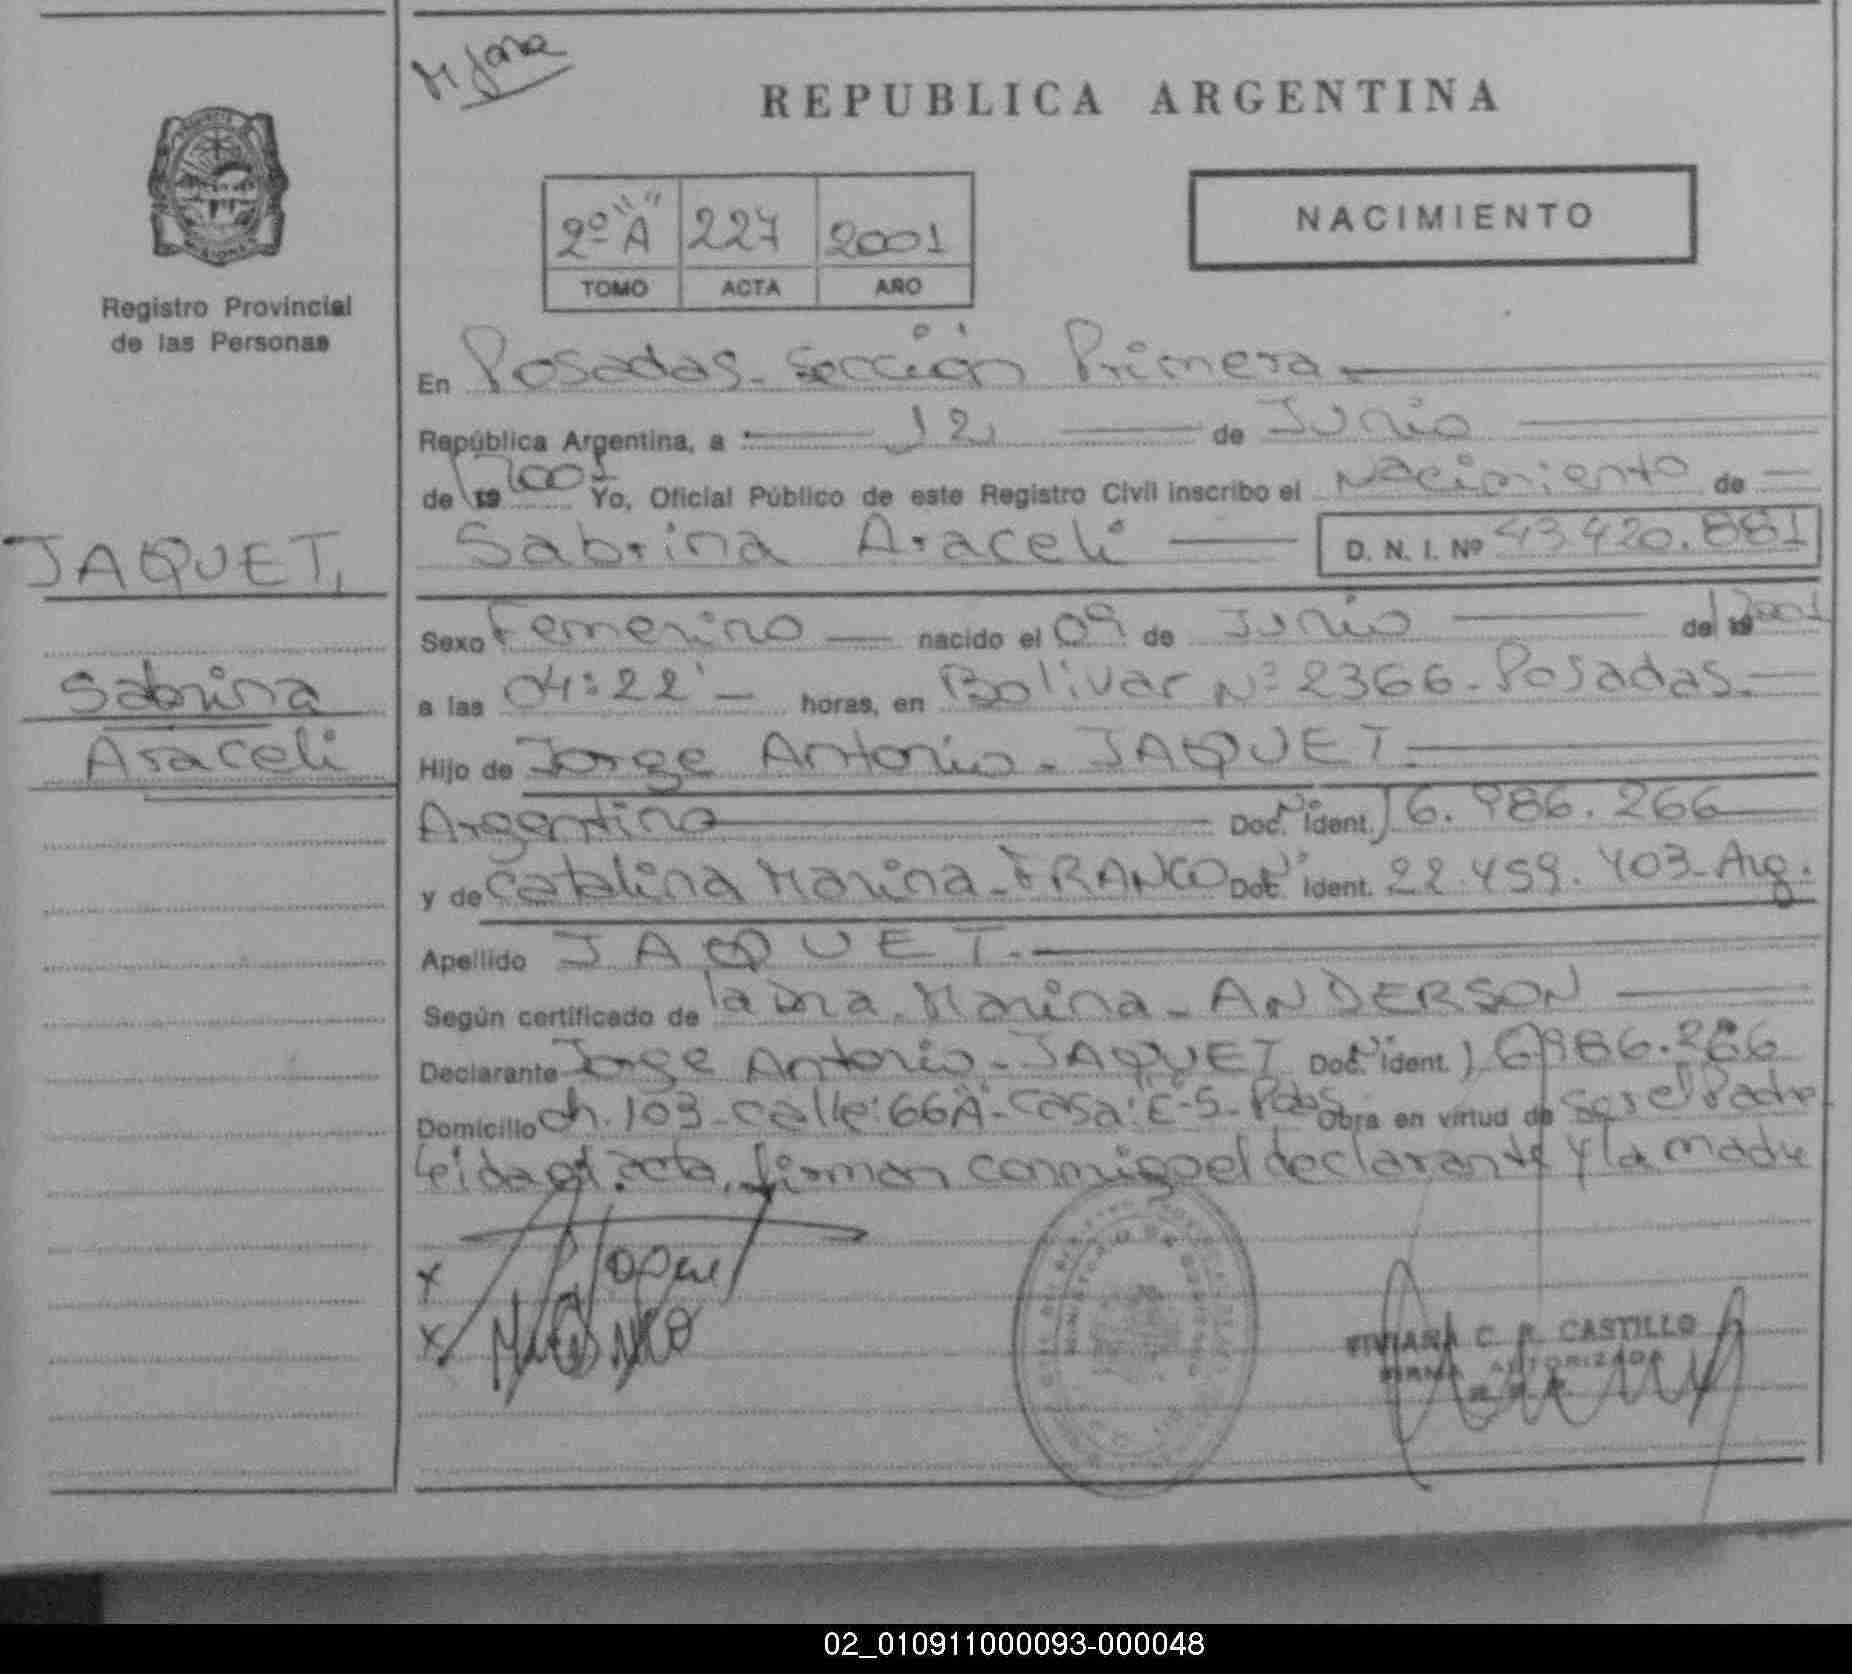 M Jara
REPUBLICA ARGENTINA
2º "A" 227 2001
TOMO ACTA AÑO
NACIMIENTO
MISIONES
Registro Provincial
de las Personas
JAQUET,
Sabrina
Araceli
En Posadas - Sección Primera
República Argentina, a 12 de Junio
de 19 2001 Yo, Oficial Público de este Registro Civil inscribo el Nacimiento de
Sabrina Araceli D. N. I. Nº 43 420.881
Sexo Femenino nacido el 09 de Junio de 19 2001
a las 04:22' horas, en Bolivar Nº 2366 - Posadas.
Hijo de Jorge Antonio - JAQUET.
Argentino Doc. Nº Ident. 16.986.266
y de Catalina Marina - FRANCO Doc. Nº Ident. 22.459.403 - Arg.
Apellido JAQUET.
Según certificado de la Dra. Marina - ANDERSON
Declarante Jorge Antonio - JAQUET Doc. Nº Ident. 16986.266
Domicilio Ch. 103 - calle: 66 "A" - Casa: "E"-5 - Pdas Obra en virtud de Ser el Padre
leida el acta, firman conmigo el declarante y la madre
x Jaquet
x
MINISTERIO DE GOBIERNO
VIVIANA C. R. CASTILLO
FIRMA AUTORIZADA
02_010911000093-000048